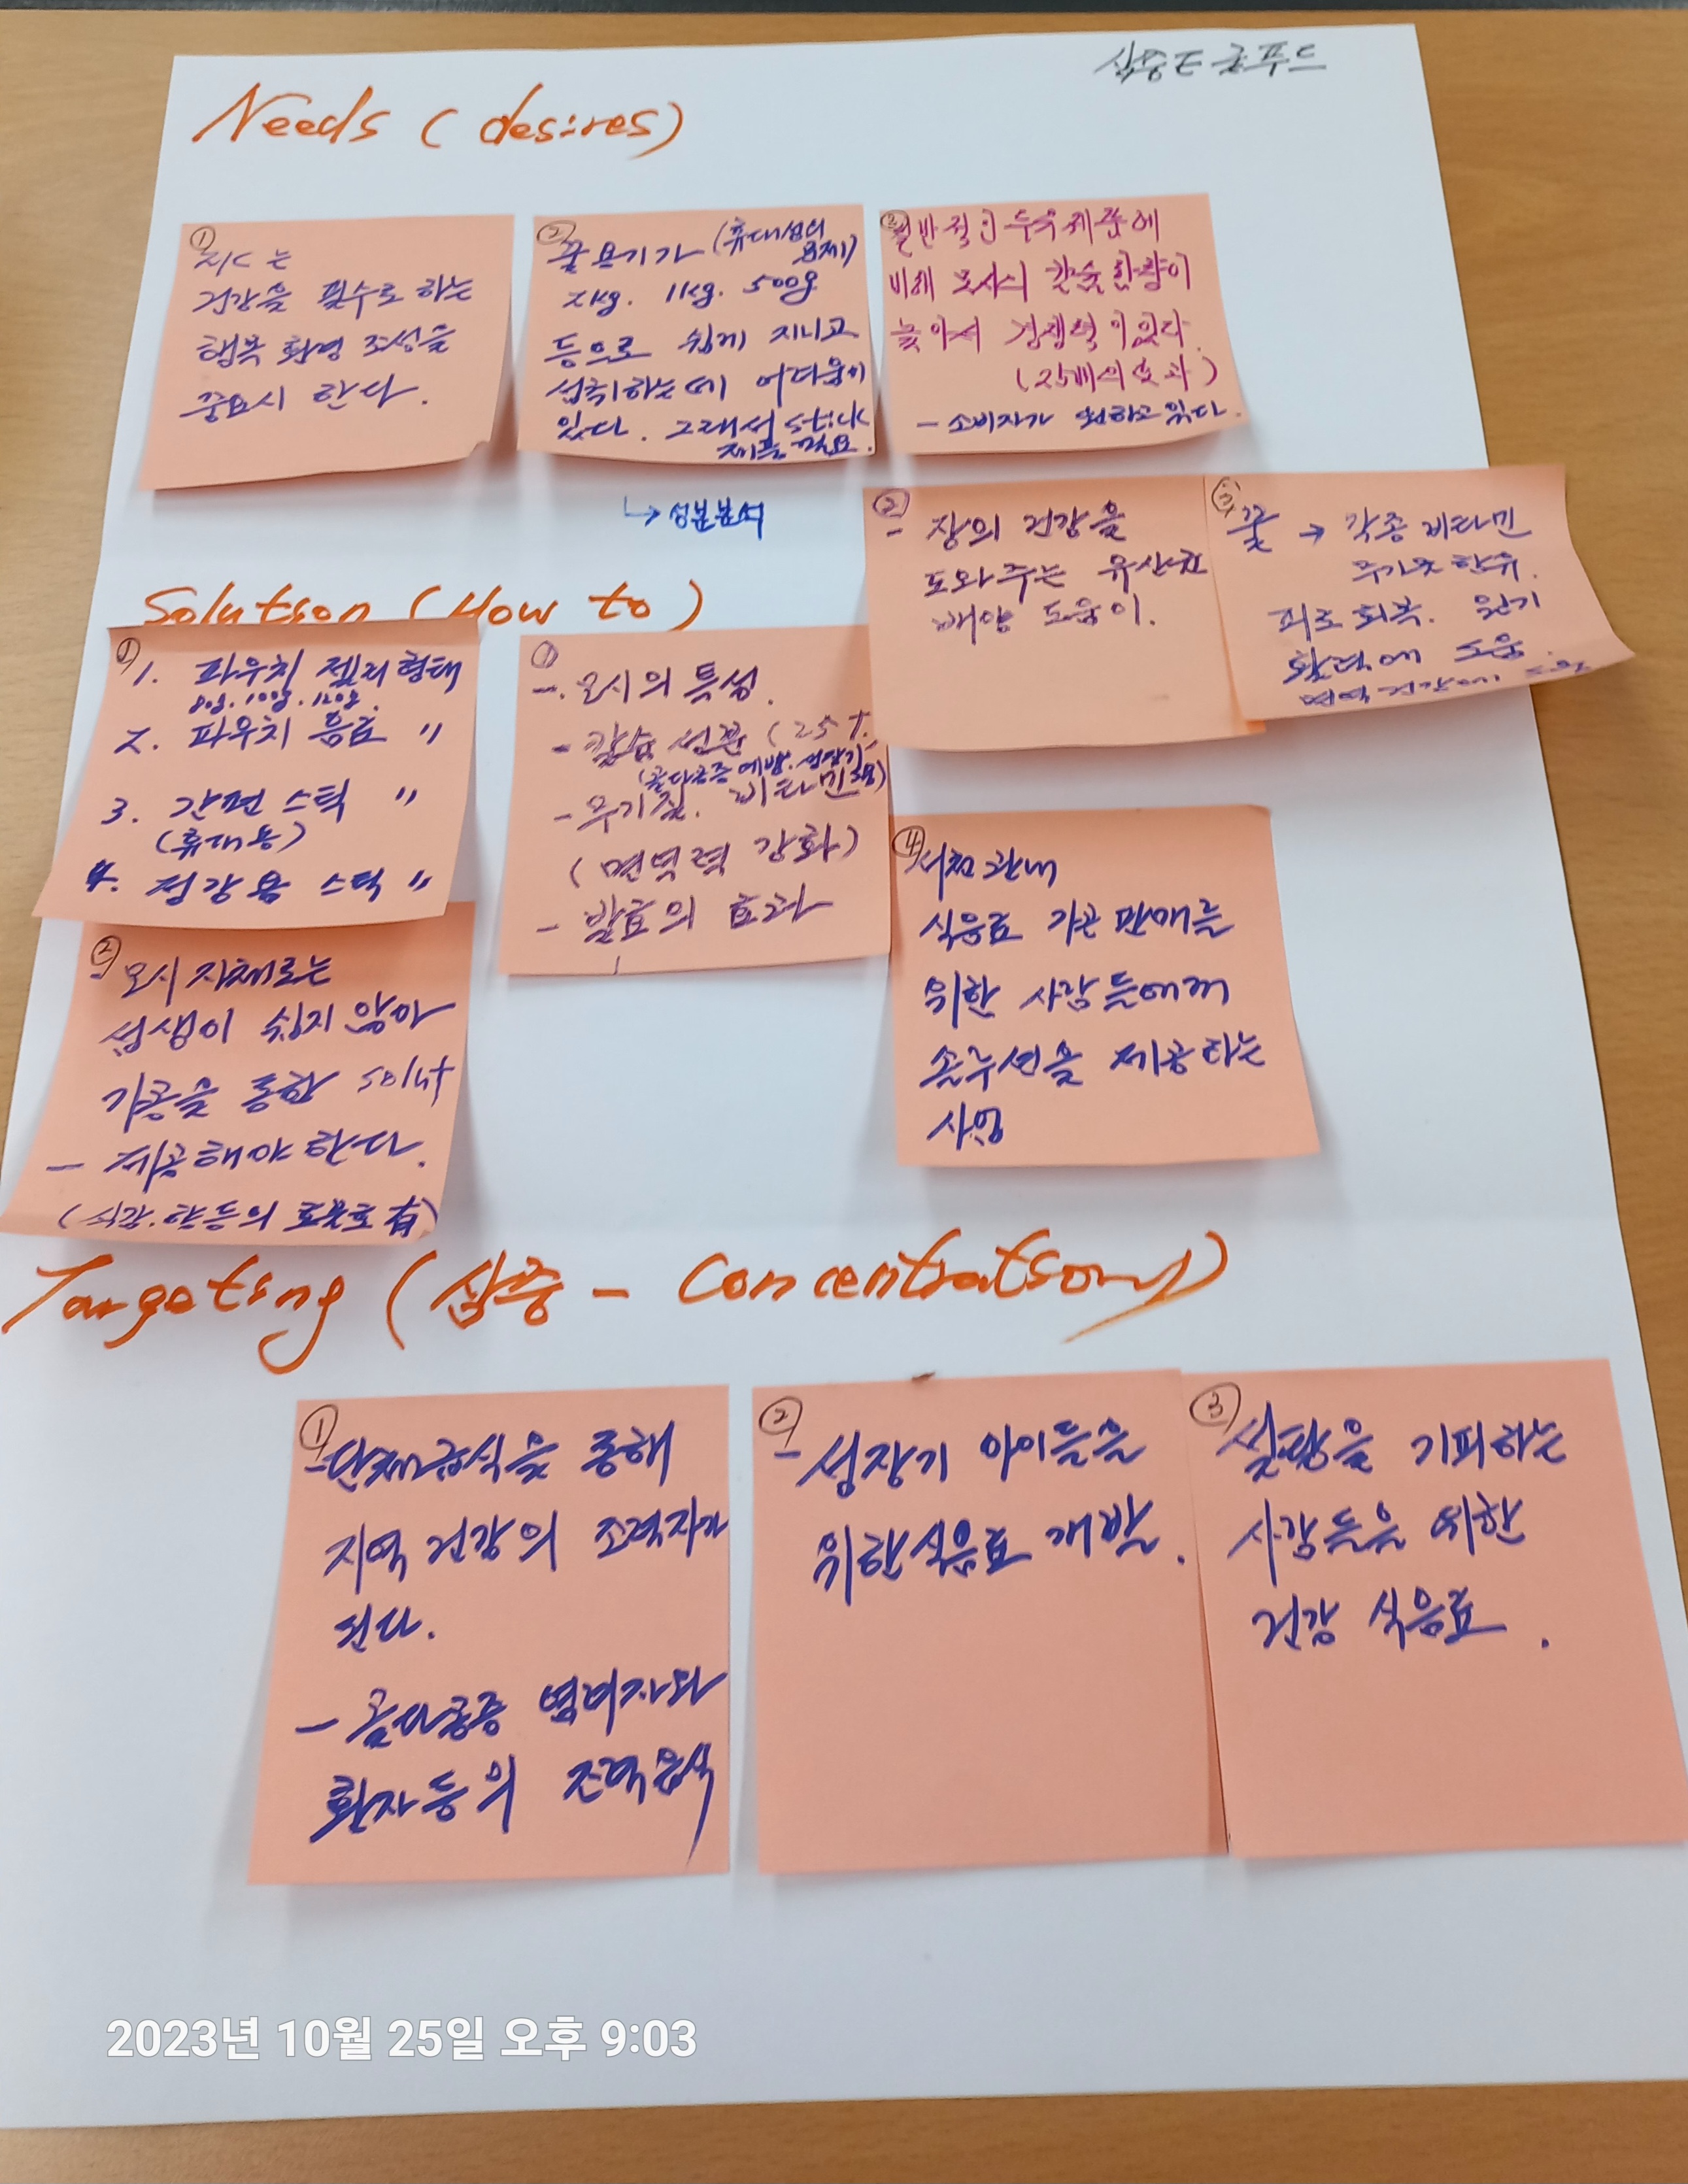 Needs (desires)
①
건강을 필수로 하는
행복 환경 조성을
중요시 한다.
②
꿀 용기가 (휴대성의
문제)
2kg. 1kg. 500g
등으로 쉽게 지니고
섭취하는데 어려움이
있다. 그래서 stick
제품 필요.
↳ 성분분석
③
일반적인 두유제품에
비해 모시의 칼슘 함량이
높아서 경쟁력이 있다.
(25배의 효과)
- 소비자가 원하고 있다.
Solution (How to)
①
1. 파우치 젤리형태
80g. 100g. 120g.
2. 파우치 음료 〃
3. 간편 스틱 〃
(휴대용)
4. 스틱 〃
①
-. 모시의 특성.
- 칼슘 성분 (25
(골다공증 예방. 성장기
- 무기질. 비타민
(면역력 강화)
- 발효의 효과
②
- 장의 건강을
도와주는 유산균
배양 도움이.
③
꿀 → 각종 비타민
함유.
피로 회복. 원기
회복에 도움.
②
- 모시 자체로는
섭생이 쉽지 않아
가공을 통한 solut
- 제공해야 한다.
④
서천관내
식음료 가공 판매를
위한 사람들에게
솔루션을 제공하는
사업
Targeting (집중 - Concentration)
①
- 단체급식을 통해
지역 건강의 조력자가
된다.
- 골다공증 염려자와
환자 등의 조력음식
②
- 성장기 아이들을
위한 식음료 개발.
③
설탕을 기피하는
사람들을 위한
건강 식음료.
2023년 10월 25일 오후 9:03